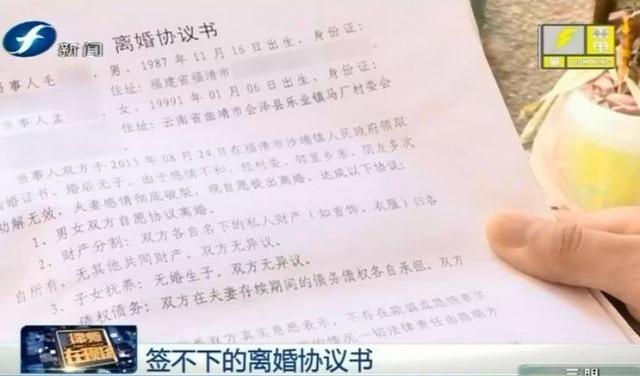 新闻
离婚协议书
当事人毛 ，男，1987年11月16日出生，身份证：
住址：福建省福清市
当事人孟 ，女，19991年01月06日出生，身份证：
住址：云南省曲靖市会泽县乐业镇马厂村委会
当事人双方于2015年08月24日在福清市沙埔镇人民政府领取
结婚证书，婚后无子，由于感情不和，经村委、邻里乡亲、朋友多次
劝解无效，夫妻感情彻底破裂，现自愿提出离婚，达成以下协议：
1、男女双方自愿协议离婚。
2、财产分割：双方各自名下的私人财产（如首饰、衣服）归各
自所有，无其他共同财产，双方无异议。
3、子女抚养：无婚生子，双方无异议。
债权债务：双方在夫妻存续期间的债务债权各自承担，双方
双方真实意思表示，不存在欺骗或隐瞒事实
的情况，一切法律责任由隐瞒方
签不下的离婚协议书